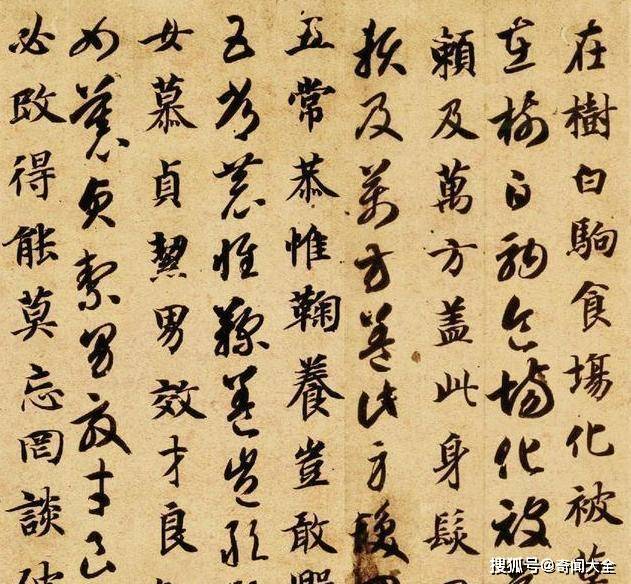 在樹白駒食塲化被草
在樹白駒食塲化被草
賴及萬方蓋此身髮
賴及萬方蓋此身髮四
五常恭惟鞠養豈敢毀
五常恭惟鞠養豈敢毀
女慕貞絜男效才良
女慕貞絜男效才良
必改得能莫忘罔談彼
搜狐号@奇闻大全